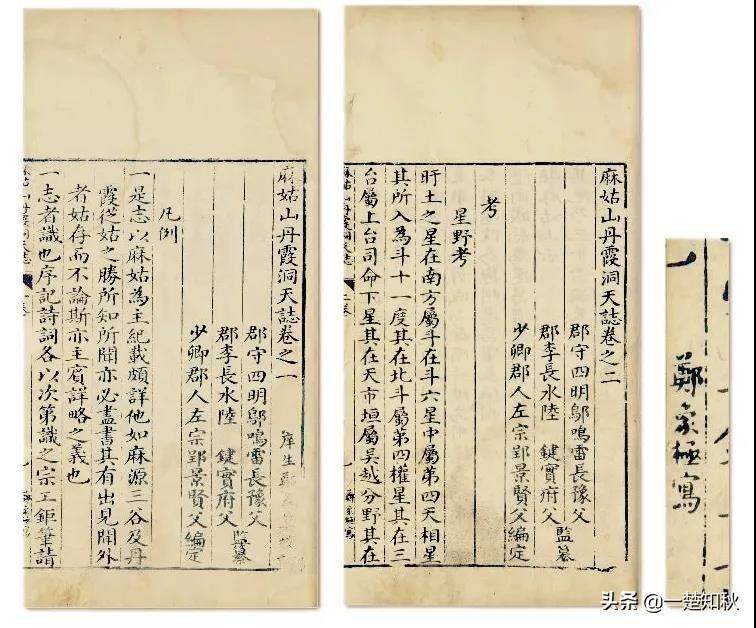 麻姑山丹霞洞天誌卷之一
庠生
郡守四明鄔鳴雷長豫父
郡李長水陸 鍵實府父
監纂
少卿郡人左宗郢景賢父編定
凡例
一是志以麻姑為主紀載頗詳他如麻源三谷及丹
霞從姑之勝所知所聞亦必盡書其有出見聞外
者姑存而不論斯亦主賓詳略之義也
一志者識也序記詩詞各以次第識之宗工鉅筆請
麻姑山丹霞洞天誌卷之二
郡守四明鄔鳴雷長豫父
郡李長水陸 鍵實府父
監纂
少卿郡人左宗郢景賢父編定
考
星野考
盱土之星在南方屬斗在斗六星中屬第四天相星
其所入為斗十一度其在北斗屬第四權星其在三
台屬上台司命下星其在天市垣屬吳越分野其在
麻姑山丹霞洞天誌 二卷
鄭 極寫
头条 @一楚知秋